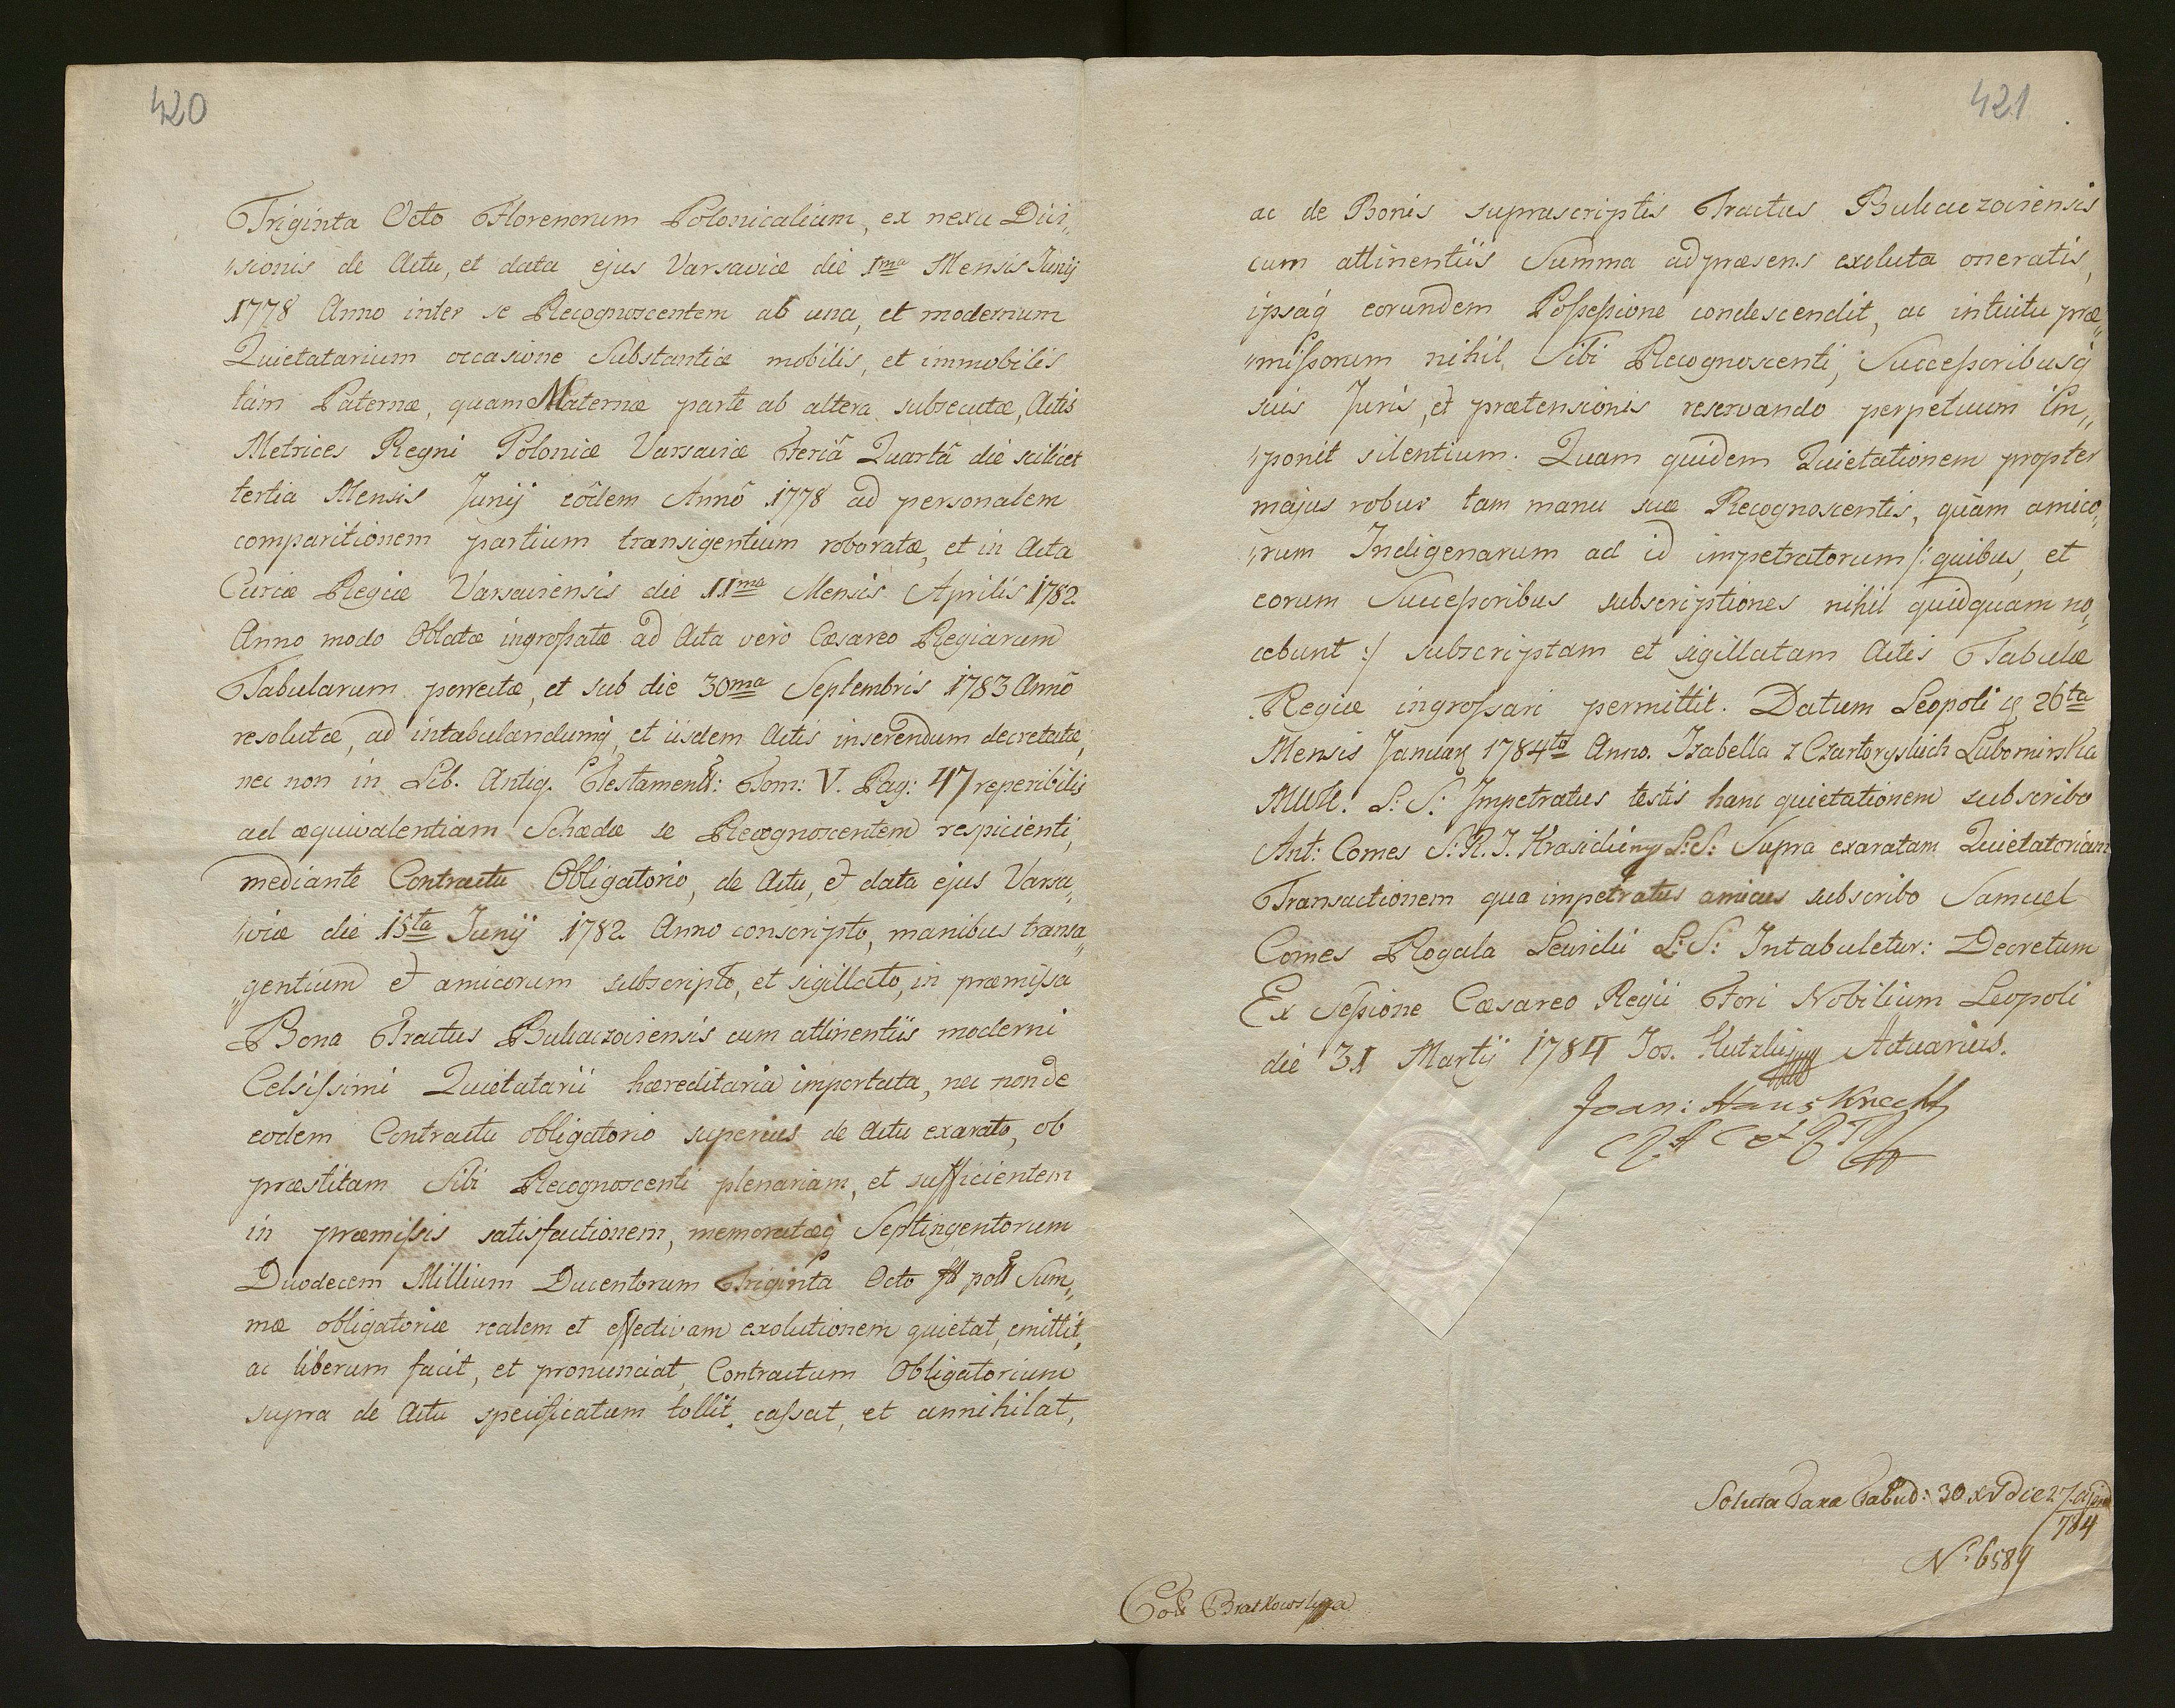 420
Triginta Octo Florenorum Polonicalium, ex nexu Divi„
„sionis de Actu, et data ejus Varsaviæ die 1ma Mensis Junij
1778 Anno inter se Recognoscentem ab una, et modernum
Quietatarium occasione Substantiæ mobilis, et immobilis
tam Paternæ, quam Maternæ parte ab altera subsecutæ, Actis
Metrices Regni Poloniæ Varsaviæ Feriâ Quartâ die scilicet
tertia Mensis Junij eôdem Annô 1778 ad personalem
comparitionem partium transigentium roboratæ, et in Acta
Curiæ Regiæ Varsaviensis die 11ma Mensis Aprilis 1782
Anno modo Oblatæ ingrossatæ ad Acta verò Cæsareo Regiarum
Tabularum porrectæ, et sub die 30ma Septembris 1783 Annô
resolutæ, ad intabulandumq, et iisdem Actis inserendum decretatæ,
nec non in Lib. Antiq. Testament: Tom: V. Pag: 47 reperibilis
ad æquivalentiam Schædæ se Recognoscentem respicienti,
mediante Contractu Obligatorio, de Actu, et data ejus Varsa„
„viæ die 15ta Junij 1782 Anno conscripto, manibus transa„
„gentium et amicorum subscripto, et sigillato, in præmissa
Bona Tractus Buhaczoviensis cum attinentiis moderni
Celsissimi Quietatarii hæreditaria importata, nec non de
eodem Contractu obligatorio superius de Actu exarato, ob
præstitam Sibi Recognoscenti plenariam, et sufficientem
in præmissis satisfactionem, memoratæq Septingentorum
Duodecem Millium Ducentorum Triginta Octo fl pol Sum„
mæ obligatoriæ realem et effectivam exolutionem quietat, emittit,
ac liberum facit, et pronunciat, Contractum Obligatorium
supra de Actu specificatum tollit, cassat, et annihilat,
421
ac de Bonis suprascriptis Tractus Buhaczoviensis
cum attinentiis Summa ad præsens exoluta oneratis,
ipsaq eorundem Possessione condescendit, ac intuitu præ„
„missorum nihil Sibi Recognoscenti, Successoribusq
suis Juris, et prætensionis reservando perpetuum im„
„ponit silentium. Quam quidem Quietationem propter
majus robur tam manu suæ Recognoscentis, quàm amico„
„rum Indigenarum ad id impetratorum /: quibus, et
eorum Successoribus subscriptiones nihil quidquam no„
cebunt :/ subscriptam et sigillatam Actis Tabulæ
Regiæ ingrossari permittit. Datum Leopoli 26ta
Mensis Januar 1784to Anno. Izabella z Czartoryskich Lubomirska
MWK. L: S: Impetratus testis hanc quietationem subscribo
Ant: Comes S: R. J. Krasicki L: S: Supra exaratam Quietatoriam
Transactionem qua impetratus amicus subscribo Samuel
Comes Rogala L: S: Intabuletur: Decretum
Ex Sessione Cæsareo Regii Fori Nobilium Leopoli
die 31 Martij 1784 Jos. Actuarius.
Joan: Hausknecht
Soluta Taxa Tabul: 30 x die 27 April
784
No 6589
Coll Bratkowski